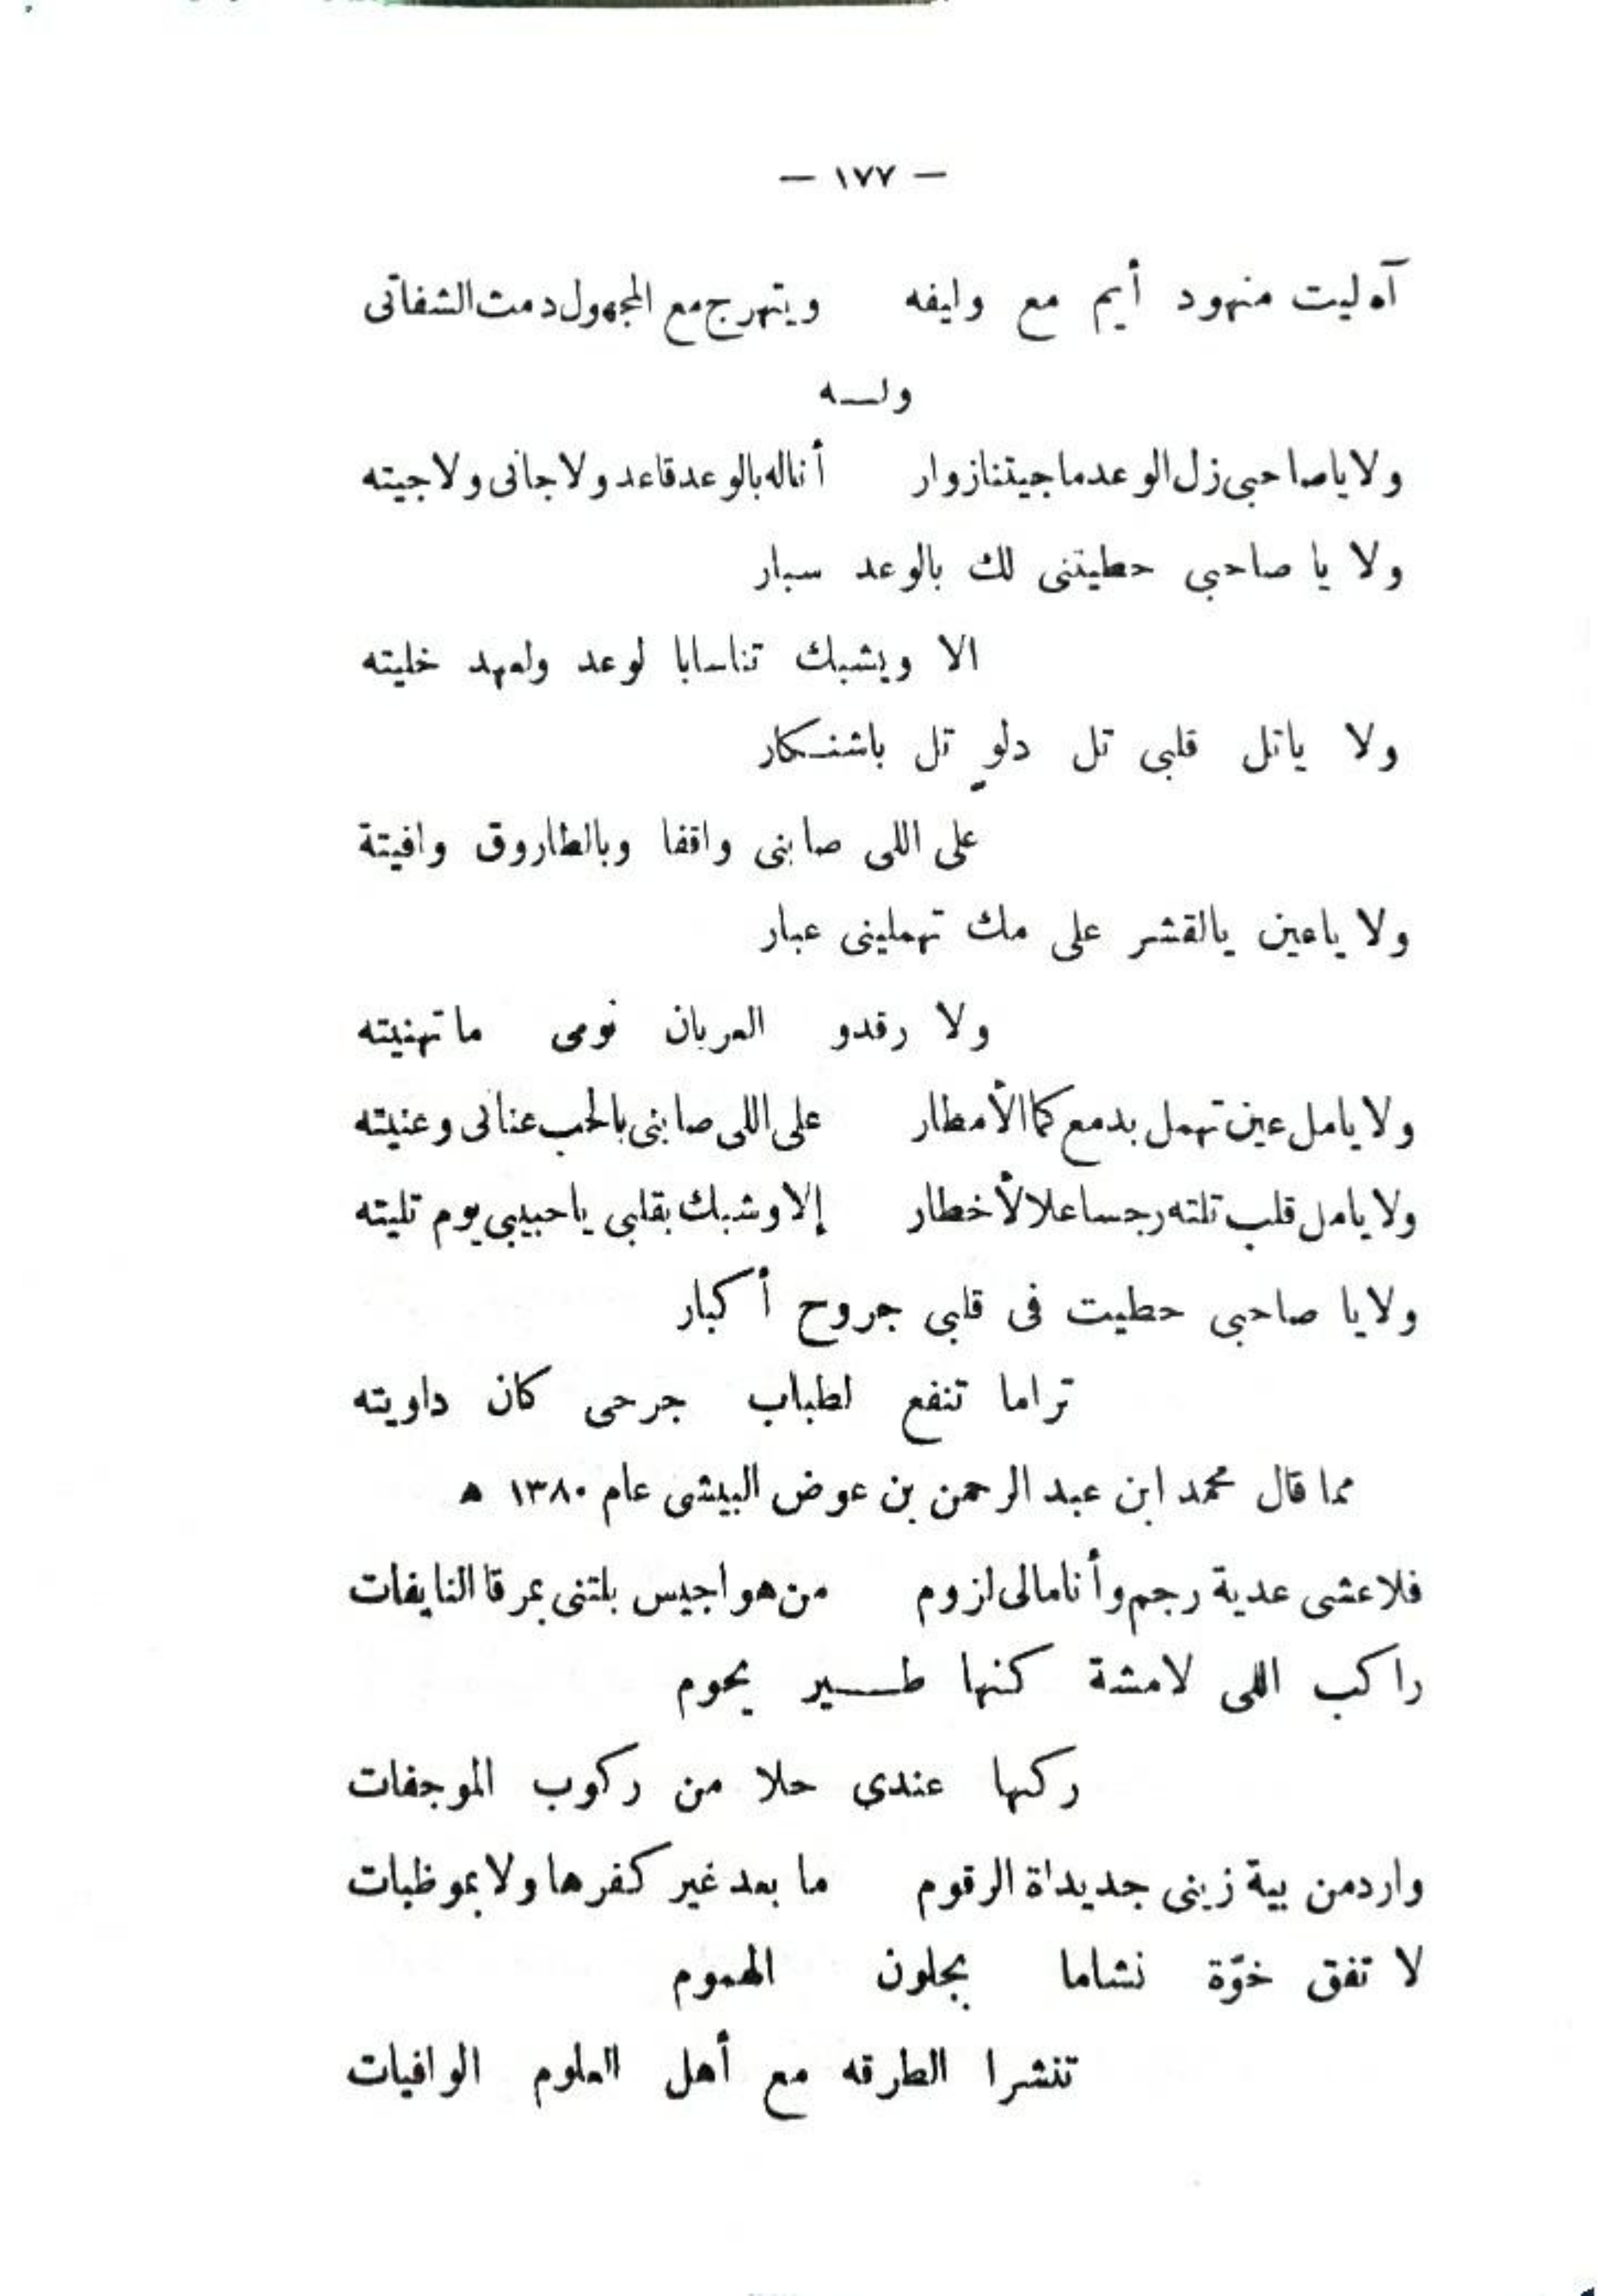 — ١٧٧ —
آه ليت منهود أيم مع وليفه ويتهرج مع المجهول دمث الشفاتى
ولــه
ولا ياصاحبى زل الوعد ماجيتنا زوار أنا له بالوعد قاعد ولا جانى ولا جيته
ولا يا صاحبى حطيتنى لك بالوعد سبار
الا ويشبك تناسابا لوعد ولعهد خليته
ولا ياتل قلبى تل دلوٍ تل باشنــكار
على اللى صابنى واقفا وبالطاروق وافيتة
ولا ياعين يالقشر على مك تهملينى عبار
ولا رقدو العربان نومى ماتهنيته
ولا يامل عين تهمل بدمع كما الأمطار على اللى صابنى بالحب عنانى وعنيته
ولا يامل قلب تلته رجسا علا لأخطار إلا وشبك بقلبى يا حبيبى يوم تليته
ولا يا صاحبى حطيت فى قلبى جروح أكبار
تراما تنفع لطباب جرحى كان داويته
مما قال محمد ابن عبد الرحمن بن عوض البيشى عام ١٣٨٠ ه
فلا عشى عدية رجم وأنا مالى لزوم من هواجيس بلتنى بمرقا النايفات
راكب اللى لامشة كنها طــير يحوم
ركبها عندى حلا من ركوب الموجفات
وارد من بية زينى جديداة الرقوم ما بعد غير كفرها ولا بموظبات
لا تفق خوّة نشاما يجلون الهموم
تنشرا الطرقه مع أهل العلوم الوافيات